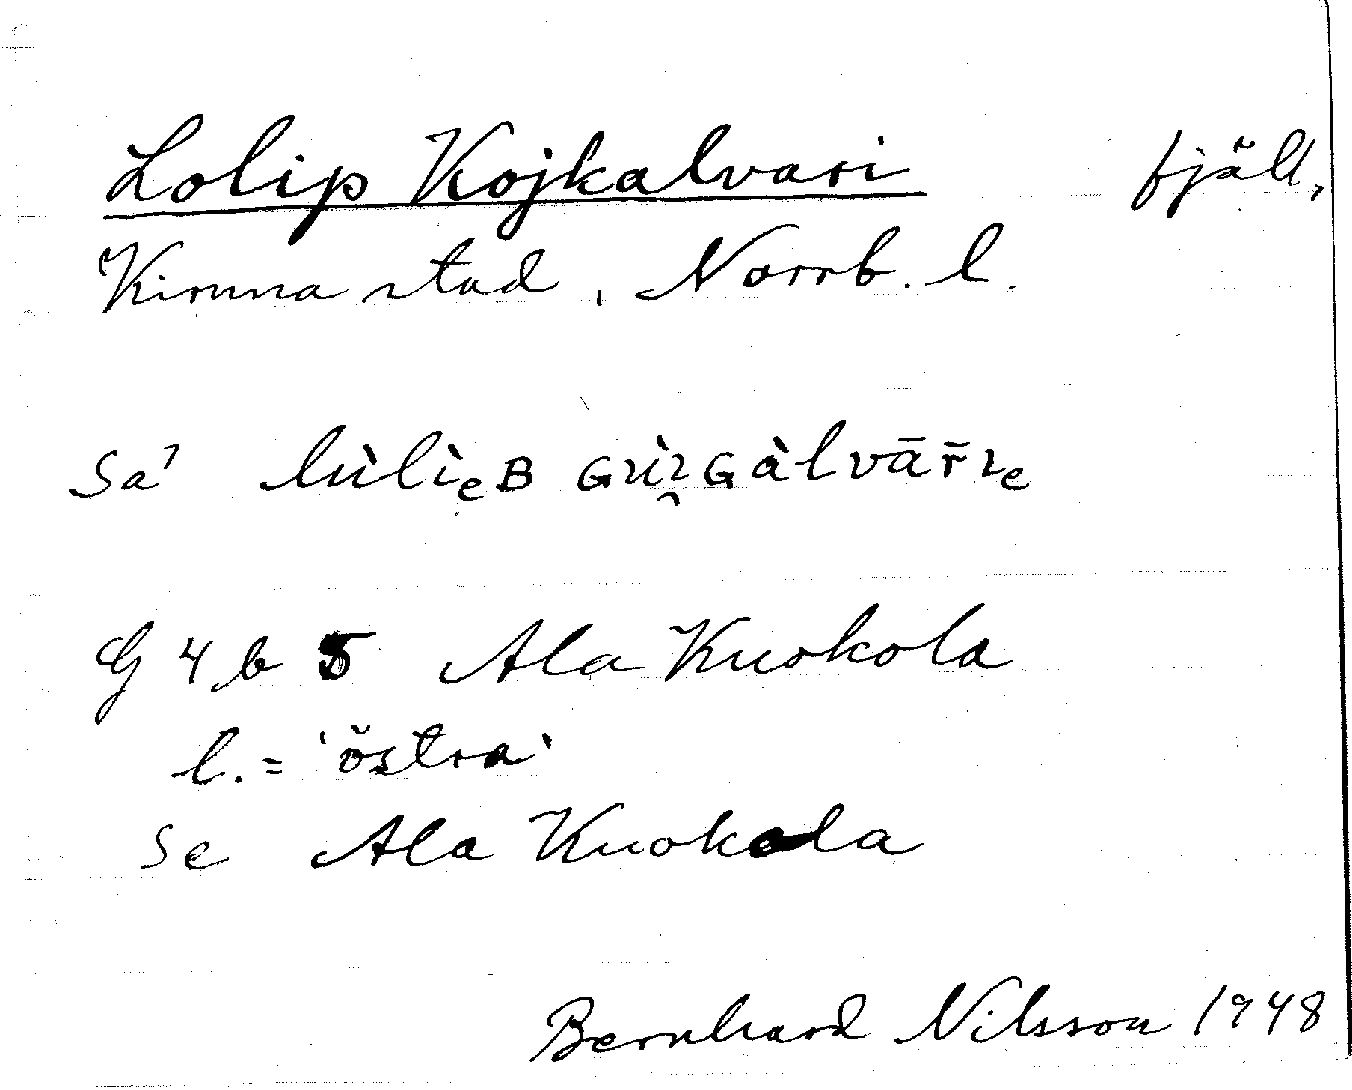 Lolip Kojkalvari fjäll,
Kiruna stad, Norrb. l.
Sa' lùlìₑB Gùi̯Gàlvār̄ıₑ
G 4 b 5 Ala Kuokola
l. = 'östra'
Se Ala Kuokola
Bernhard Nilsson 1948